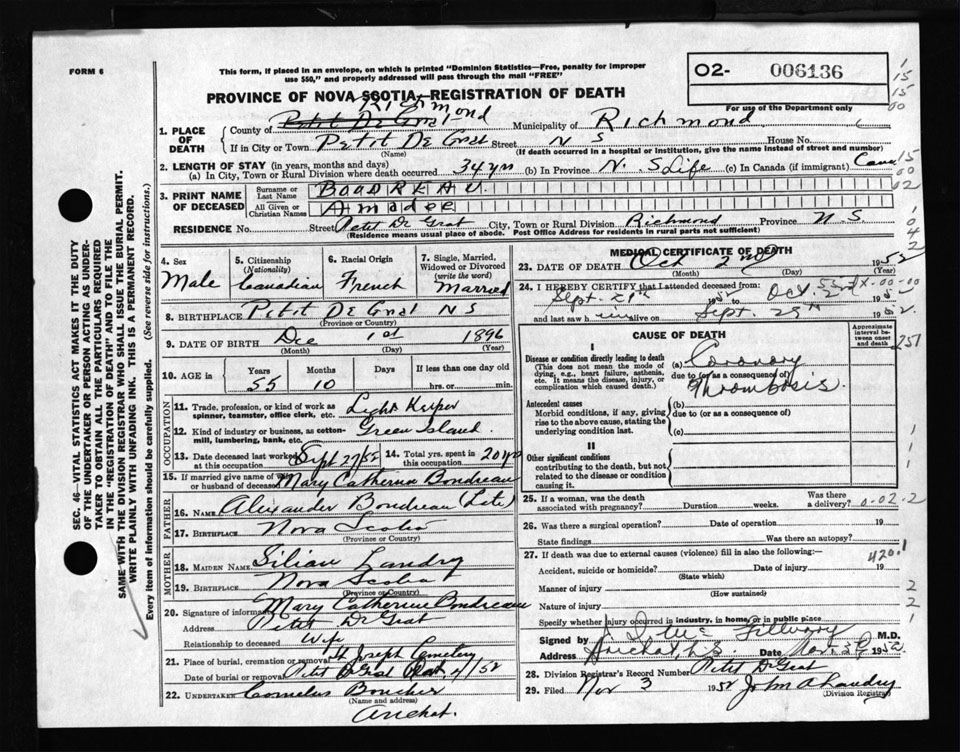 FORM 6
This form, if placed in an envelope, on which is printed "Dominion Statistics—Free, penalty for improper
use $50," and properly addressed will pass through the mail "FREE"
O2- 006136
For use of the Department only
PROVINCE OF NOVA SCOTIA—REGISTRATION OF DEATH
1. PLACE OF DEATH
County of Petit De Grat Richmond Municipality of Richmond
If in City or Town Petit De Grat Street N S House No.
(Name) (If death occurred in a hospital or institution, give its name instead of street and number)
2. LENGTH OF STAY (in years, months and days)
(a) In City, Town or Rural Division where death occurred 34 yrs (b) In Province N. S Life (c) In Canada (if immigrant)
3. PRINT NAME OF DECEASED
Surname or Last Name BOUDREAU
All Given or Christian Names Amadee
RESIDENCE No. Street Petit De Grat City, Town or Rural Division Richmond Province N. S
(Residence means usual place of abode. Post Office Address for residents in rural parts not sufficient)
4. Sex Male
5. Citizenship (Nationality) Canadian
6. Racial Origin French
7. Single, Married, Widowed or Divorced (write the word) Married
8. BIRTHPLACE Petit De Grat N S
(Province or Country)
9. DATE OF BIRTH Dec 1st 1896
(Month) (Day) (Year)
10. AGE in Years Months Days If less than one day
55 10 hrs. or min.
OCCUPATION
11. Trade, profession, or kind of work as spinner, teamster, office clerk, etc. Light Keeper
12. Kind of industry or business, as cotton-mill, lumbering, bank, etc. Green Island
13. Date deceased last worked at this occupation Sept 27/52 14. Total yrs. spent in this occupation 20 yrs
15. If married give name of wife or husband of deceased Mary Catherine Boudreau
FATHER
16. Name Alexander Boudreau (Late)
17. Birthplace Nova Scotia
(Province or Country)
MOTHER
18. MAIDEN NAME Landry
19. BIRTHPLACE Nova Scotia
(Province or Country)
20. Signature of informant Mary Catherine Boudreau
Address Petit De Grat
Relationship to deceased Wife
21. Place of burial, cremation or removal St Joseph Cemetery
Date of burial or removal Petit De Grat 4/52
22. UNDERTAKER Cornelius Boucher
(Name and address)
Arichat.
MEDICAL CERTIFICATE OF DEATH
23. DATE OF DEATH Oct 2nd 1952
(Month) (Day) (Year)
24. I HEREBY CERTIFY that I attended deceased from:
Sept. 27th 1952 Oct 2nd 1952
and last saw him alive on Sept. 29th
CAUSE OF DEATH
Approximate interval between onset and death
I
Disease or condition directly leading to death
(This does not mean the mode of dying, e.g., heart failure, asthenia, etc. It means the disease, injury, or complication which caused death.)
(a) Coronary
due to (or as a consequence of)
Thrombosis.
Antecedent causes
Morbid conditions, if any, giving rise to the above cause, stating the underlying condition last.
(b)
due to (or as a consequence of)
(c)
II
Other significant conditions
contributing to the death, but not related to the disease or condition causing it.
25. If a woman, was the death associated with pregnancy? Duration weeks. Was there a delivery?
0-02-2
26. Was there a surgical operation? Date of operation 19
State findings Was there an autopsy?
27. If death was due to external causes (violence) fill in also the following:—
420.1
Accident, suicide or homicide? Date of injury 19
(State which)
Manner of injury
(How sustained)
Nature of injury
Specify whether injury occurred in industry, in home, or in public place
Signed by M.D.
Address Arichat N.S. Date Nov. 3 1952
28. Division Registrar's Record Number Petit De Grat
29. Filed Nov 3 1952 John A Landry
(Division Registrar)
SEC. 46—VITAL STATISTICS ACT MAKES IT THE DUTY
OF THE UNDERTAKER OR PERSON ACTING AS UNDER-
TAKER TO OBTAIN ALL THE PARTICULARS REQUIRED
IN THE "REGISTRATION OF DEATH" AND TO FILE THE
SAME WITH THE DIVISION REGISTRAR WHO SHALL ISSUE THE BURIAL PERMIT.
WRITE PLAINLY WITH UNFADING INK. THIS IS A PERMANENT RECORD.
Every item of information should be carefully supplied. (See reverse side for instructions.)